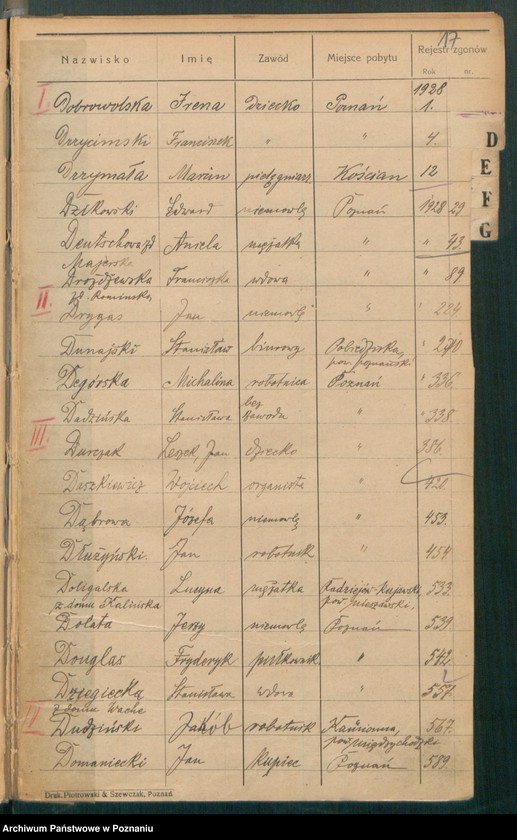 17
Nazwisko Imię Zawód Miejsce pobytu Rejestr zgonów
Rok nr.
1928
I. Dobrowolska Irena dziecko Poznań 1.
Drzycimski Franciszek " " 4.
Drzymała Marcin pielęgniarz. Kościan 12
Dzikowski Edward niemowlę Poznań 1928 29
Deutschowa Aniela mężatka " " 43.
Majerska
Drożdżewska Franciszka wdowa " " 89.
II. Drygas Jan niemowlę " " 224
Dunajski Stanisław biurowy " 270
pow. poznański
Degórska Michalina robotnica Poznań " 336.
Dadzińska Stanisława bez zawodu " " 338.
III. Durczak Leszek, Jan dziecko " 386.
Daszkiewicz Wojciech organista " 420.
Dąbrowa Józefa niemowlę " 453.
Dłużyński Jan robotnik " 454
Doligalska Lucyna mężatka Radziejów-Kujawski 533.
z domu Kalińska pow. nieszawski.
Dolata Jerzy niemowlę Poznań 539.
Douglas Fryderyk pułkownik " 542.
Dzięgiecka Stanisława wdowa " 557.
z domu Wache
IV Dudziński Jakób robotnik Kamionna, 567.
pow. międzychodzki
Domaniecki Jan kupiec Poznań 589.
Druk. Piotrowski & Szewczak, Poznań
D
E
F
G
Archiwum Państwowe w Poznaniu